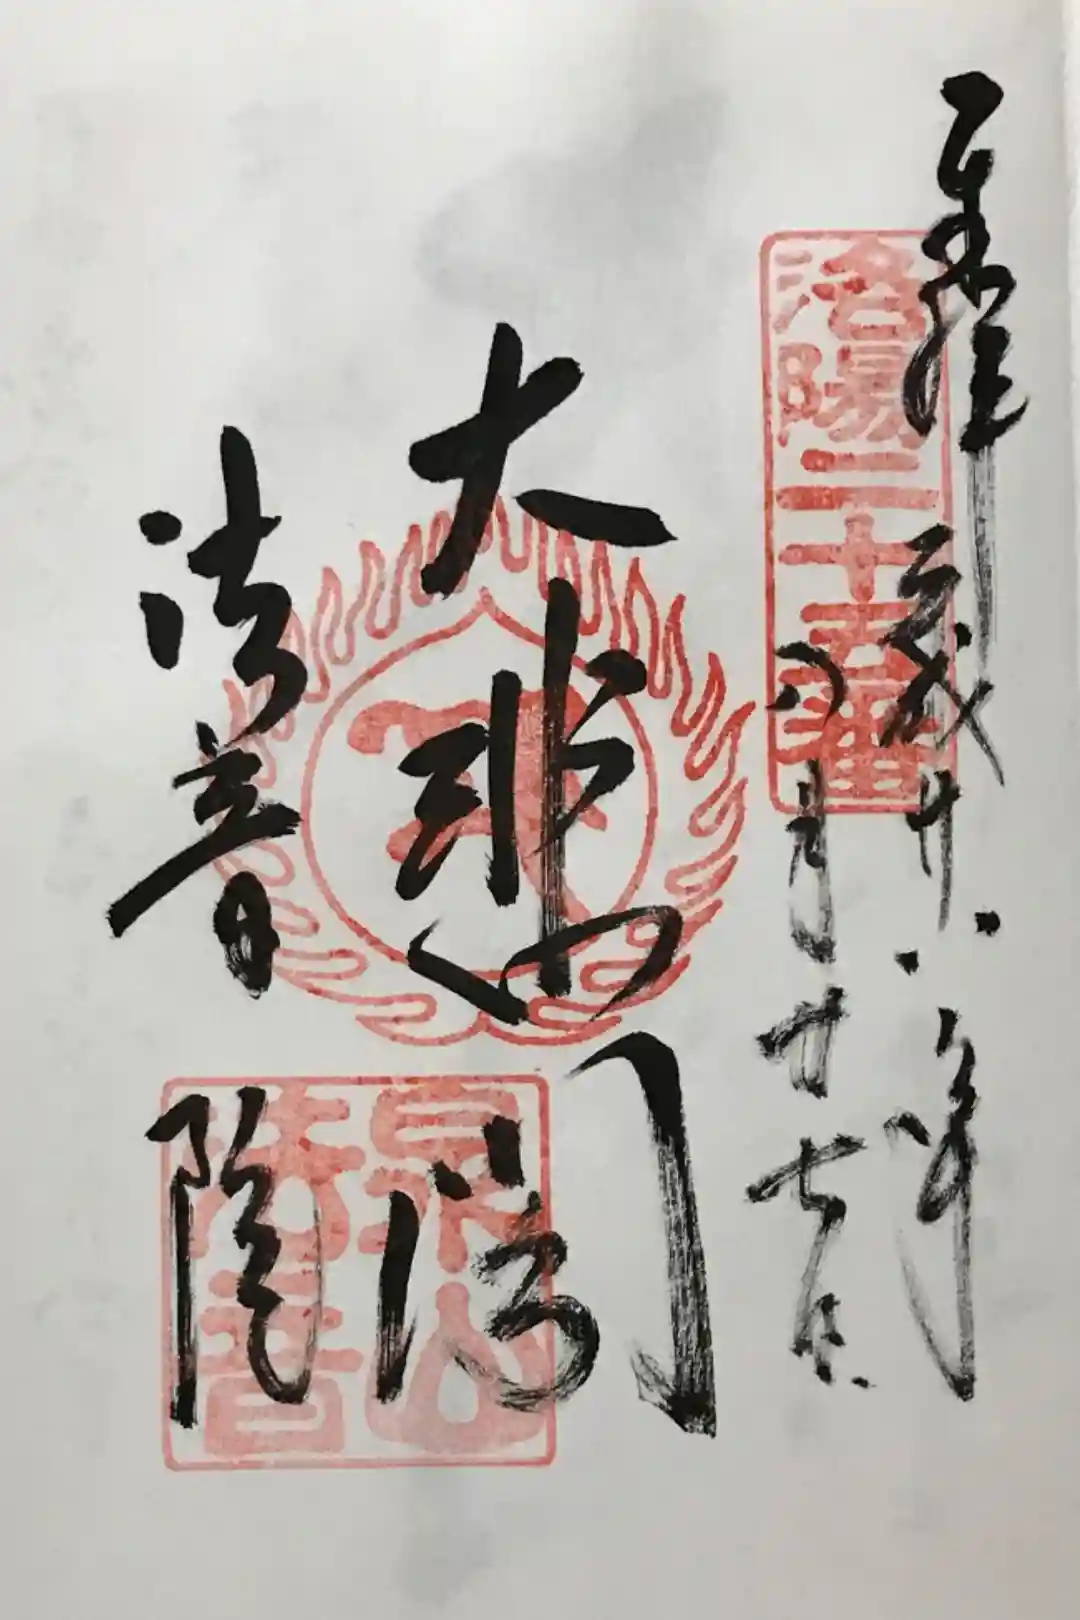 奉拝
洛陽二十五番
平成廿八年
四月廿七日
大悲閣
法音院
泉山
法音